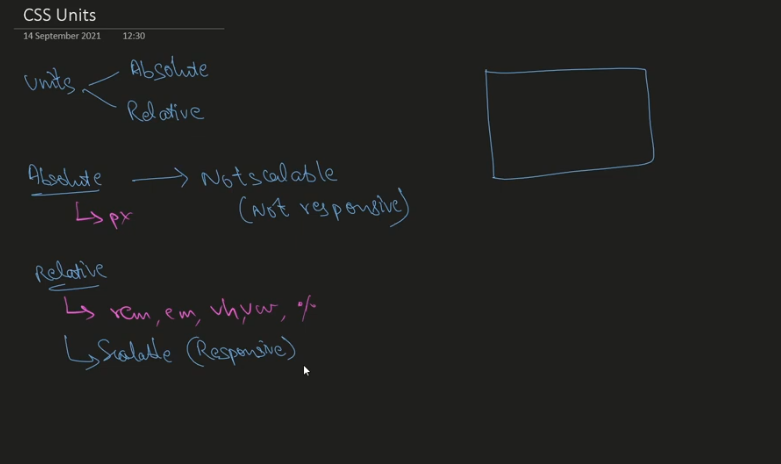 CSS Units
14 September 2021 12:30
Units
Absolute
Relative
Absolute → Not scalable
(Not responsive)
px
Relative
rem, em, vh, vw, %
Scalable (Responsive)